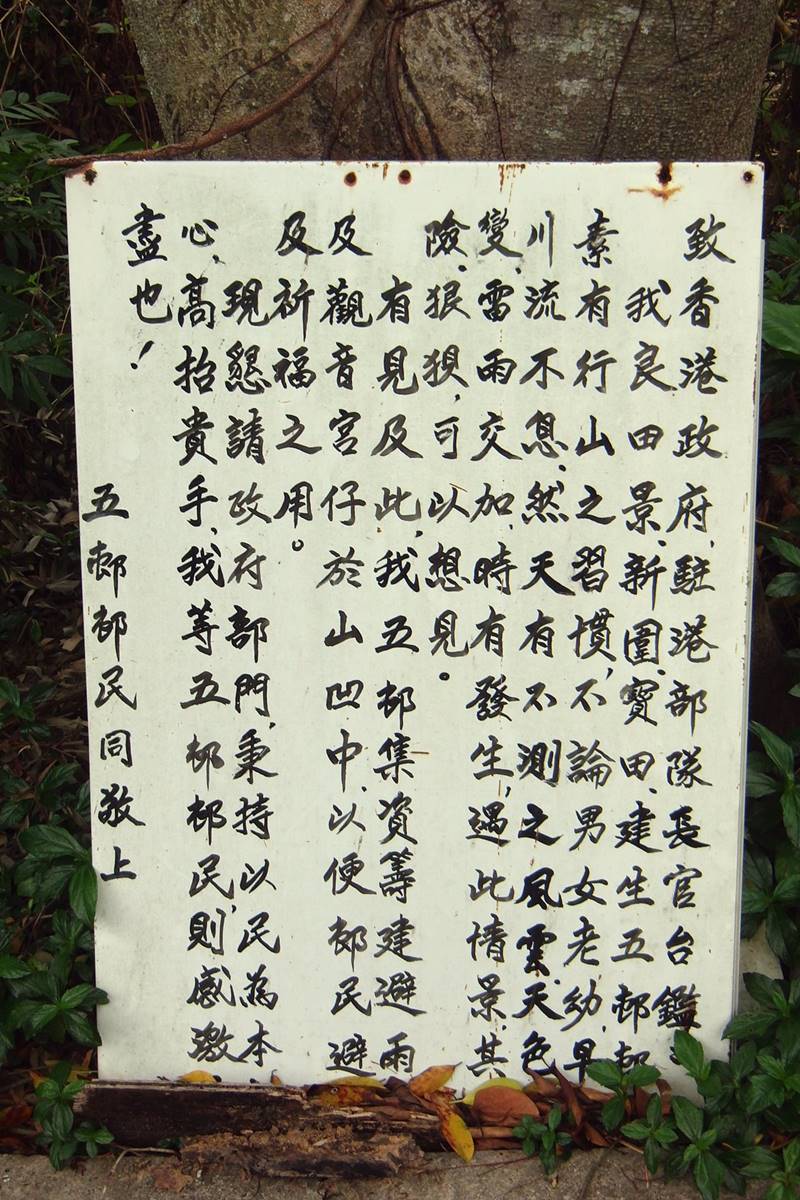 致香港政府、駐港部隊長官台鑑：
我良田景、新圍、寶田、建生五邨邨
素有行山之習慣，不論男女老幼，早
川流不息，然天有不測之風雲，天色
變，雷雨交加，時有發生，遇此情景，其
險、狼狽，可以想見。
有見及此，我五邨集資籌建避雨
及觀音宮仔於山凹中，以便邨民避
及祈福之用。
現懇請政府部門，秉持以民為本
心，高抬貴手，我等五邨邨民，則感激
盡也！
五邨邨民同敬上